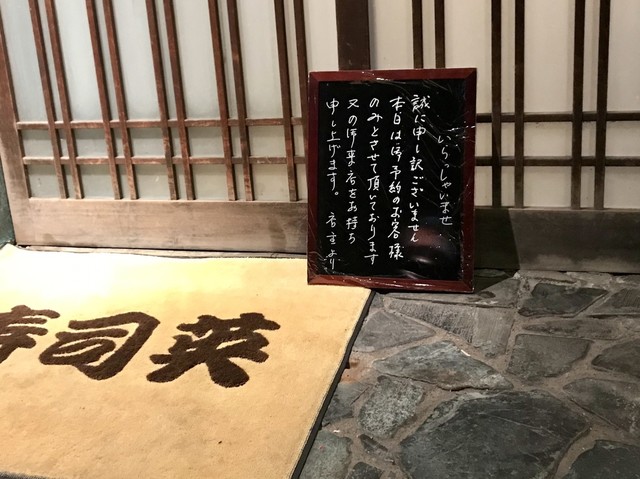 いらっしゃいませ
誠に申し訳ございません
本日は御予約のお客様
のみとさせて頂いております
又の御来店をお待ち
申し上げます。 店主より
寿司英